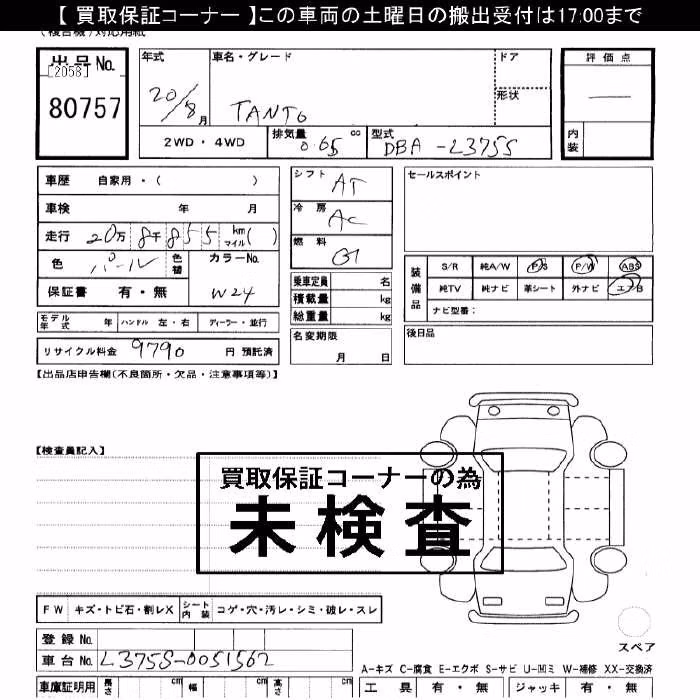 【 買取保証コーナー 】この車両の土曜日の搬出受付は17:00まで
出品No.
[2058]
80757
年式
20/8月
車名・グレード
TANTO
ドア
形状
評価点
—
内装
2WD・4WD
排気量 0.65 cc
型式 DBA-L375S
車歴 自家用・( )
車検 年 月
走行 20万8千855 km マイル( )
色 パール 色替
カラーNo. W24
保証書 有・無
シフト AT
冷房 AC
燃料 G
乗車定員 名
積載量 kg
総重量 kg
名変期限
月 日
セールスポイント
装備品
S/R 純A/W P/S P/W ABS
純TV 純ナビ 革シート 外ナビ エアB
ナビ型番:
後日品
モデル年式 年 ハンドル 左・右 ディーラー・並行
リサイクル料金 9790 円 預託済
【出品店申告欄(不良箇所・欠品・注意事項等)】
【検査員記入】
買取保証コーナーの為
未検査
FW キズ・トビ石・割レX シート内装 コゲ・穴・汚レ・シミ・破レ・スレ
登録No.
車台No. L375S-0051562
スペア
A-キズ C-腐食 E-エクボ S-サビ U-凹ミ W-補修 XX-交換済
車庫証明用 長さ cm 幅 cm 高さ cm
工具 有・無 ジャッキ 有・無